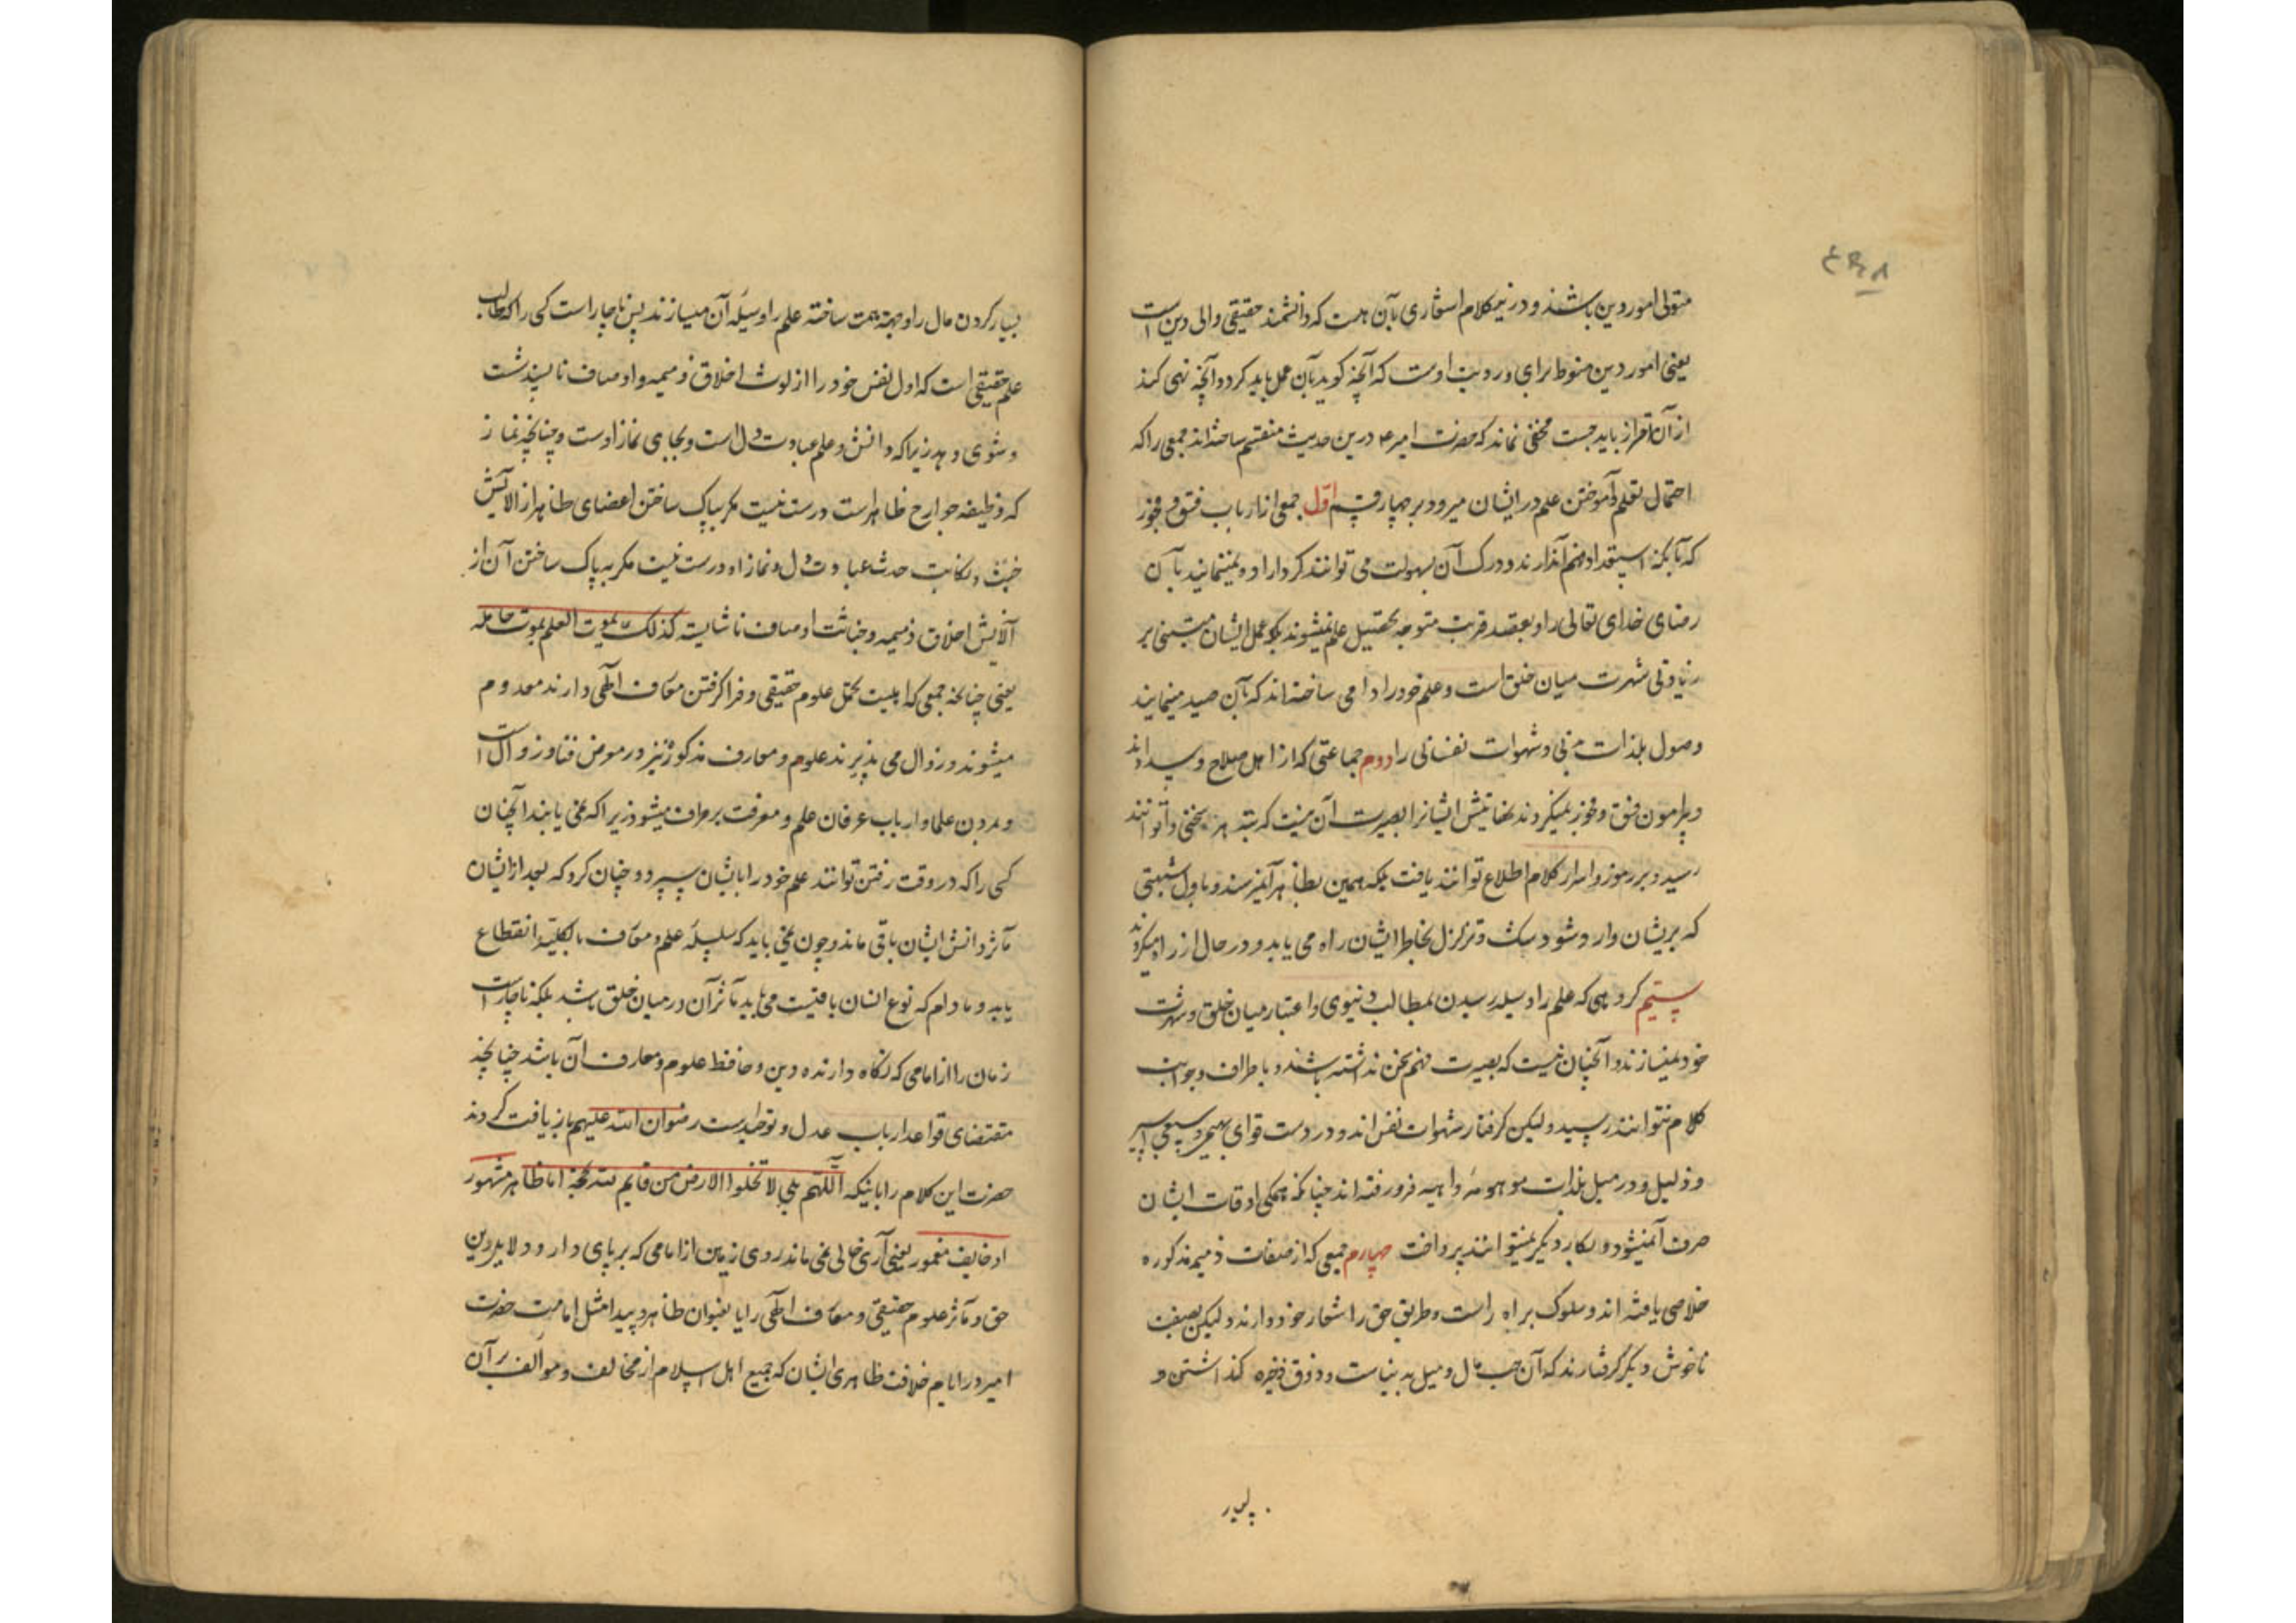 متولی امور دین باشند و درین کلام اشعاری بآن هست که دانشمند حقیقی والی دین است
یعنی امور دین منوط برای و رویت اوست که آنچه کوید بآن عمل باید کرد و آنچه نهی کند
از آن احتراز باید جست مخفی نماند که حضرت امیر ع درین حدیث منقسم ساخته‌اند جمعی را که
احتمال تعلم و آموختن علم در ایشان میرود بر چهار قسم اول جمعی از ارباب فسق و فجور
که با آنکه استعداد فهم آن دارند و درک آن بسهولت می توانند کرد اراده نمینمایند بآن
رضای خدای تعالی را و بقصد قربت متوجه تحصیل علم نمیشوند بلکه عمل ایشان مبتنی بر
زیادتی شهرت میان خلق است و علم خود را دامی ساخته‌اند که بآن صید مینمایند
وصول بلذات و شهوات نفسانی را دوم جماعتی که از اهل صلاح و سداد اند
و پیرامون فسق و فجور نمیکردند نهایتش ایشانرا بصیرت آن نیست که بته هر سخنی توانند
رسید و بر رموز و اسرار کلام اطلاع توانند یافت بلکه همین بظاهر آن میرسند و باول شبهتی
که بریشان وارد شود شک و تزلزل بخاطر ایشان راه می یابد و در حال از راه میکردند
سیم کروهی که علم را وسیله رسیدن بمطالب دنیوی و اعتبار میان خلق و شهرت
خود نمیسازند و آنچنان نیست که بصیرت فهم سخن نداشته باشند و باطراف و جوانب
کلام نتوانند رسید و لیکن کرفتار شهوات نفس اند و در دست قوای بهیمی و سبعی اسیر
و ذلیل و در میل بلذات موهومه واهیه فرو رفته اند چنانکه همکی اوقات ایشان
صرف آن میشود و بکار دیکر نمیتوانند پرداخت چهارم جمعی که از صفات ذمیمه مذکوره
خلاصی یافته اند و سلوک براه راست و طریق حق را شعار خود دارند و لیکن بصفت
ناخوش دیکر کرفتارند که آن حب مال و میل بدنیاست و ذوق ذخیره کذاشتن و
بسیار
بسیار کردن مال را وجهه همت ساخته علم را وسیله آن میسازند پس ناچار است کسی را که طالب
علم حقیقی است که اول نفس خود را از لوث اخلاق ذمیمه و اوصاف ناپسند شست
و شوی دهد زیرا که دانش و علم عبادت دل است و بجای نماز اوست و چنانچه نماز
که وظیفه جوارح ظاهر است درست نیست مکر بپاک ساختن اعضای ظاهر از آلایش
خبث و حدث عبادت دل و نماز او درست نیست مکر به پاک ساختن آن از
آلایش اخلاق ذمیمه و خباثت اوصاف ناشایسته کذلک یموت العلم بموت حامله
یعنی چنانچه جمعی که اهلیت تحمل علوم حقیقی و فرا کرفتن معارف الهی دارند معدوم
میشوند و زوال می پذیرند علوم و معارف مذکور نیز در معرض فنا و زوال است
و بمردن علما و ارباب عرفان علم و معرفت بر طرف میشود زیرا که نمی یابند آنچنان
کسی را که در وقت رفتن توانند علم خود را بایشان سپرد و چنان کرد که بعد از ایشان
مآثر دانش ایشان باقی ماند و چون نمی باید که سلسله علم و معارف بالکلیه انقطاع
یابد و مادام که نوع انسان باقیست می باید مآثر آن در میان خلق باشد بلکه ناچار است
زمان را از امامی که نکاه دارنده دین و حافظ علوم و معارف آن باشد چنانچه
مقتضای قواعد ارباب عدل و توحید است رضوان الله علیهم باز یافت کردند
حضرت این کلام را باینکه اللهم بلی لا تخلوا الارض من قایم لله بحجة اما ظاهر مشهور
او خایف مغمور یعنی آری خالی نمی ماند روی زمین از امامی که بر پای دارد دلایل دین
حق و مآثر علوم حقیقی و معارف الهی را یا بعنوان ظاهر و پیدا مثل امامت حضرت
امیر در ایام خلافت ظاهری ایشان که جمیع اهل اسلام از مخالف و موالف بر آن